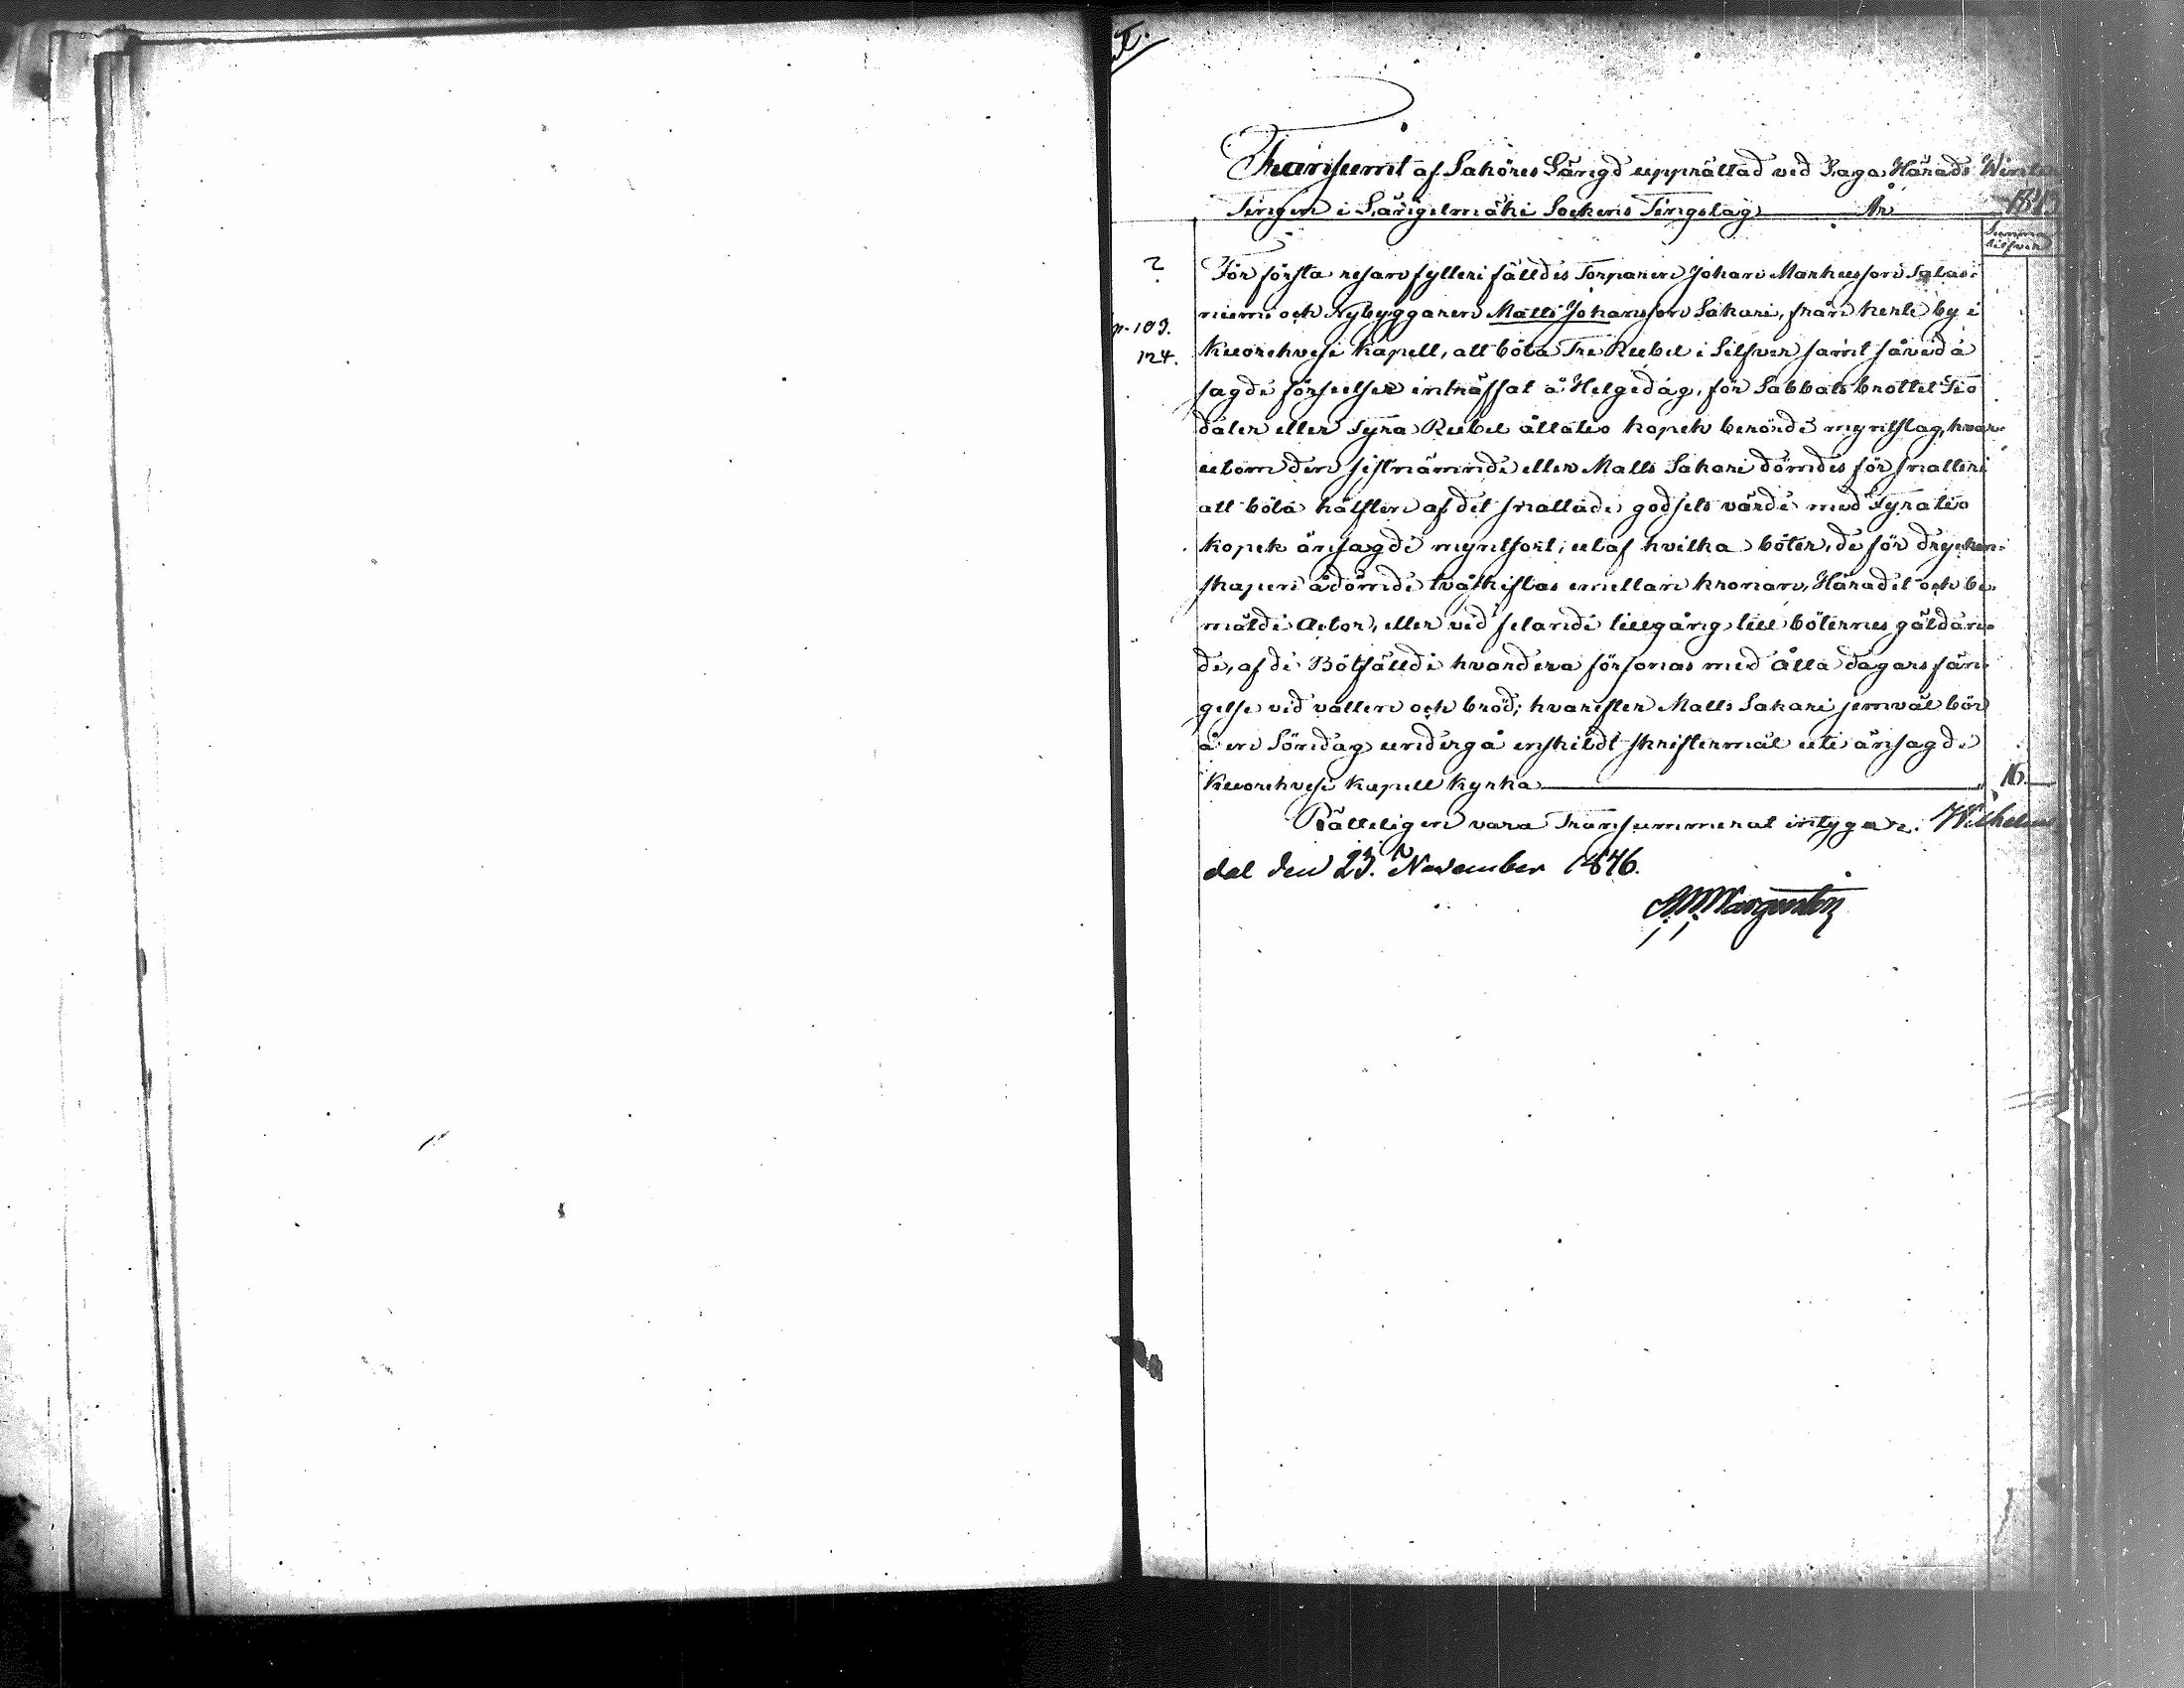 Transumt af Saköres Längd upprättad vid Saga Härads Winter
Tingen i Längelmäki Sockens Tingslag År
Summa
Silfver
2
För första resan fylleri fälldes Torparen Johan Markusson Salas-
niemi och Nybyggaren Matts Johansson Sakari, från Kerte by i
p. 109.
124.
Kuorehvesi Kapell, att böta Tre Rubel i Silfver samt såvida
sagde förseelser inträffat å Helgedag, för Sabbatsbrottet Tio
daler eller Fyra Rubel åttatio kopek berörde myntslag, hvar-
utom den sistnämnde eller Matts Sakari dömdes för snatteri
att böta hälften af det snattade godsets värde med Fyratio
kopek ansagde myntsort; utaf hvilka böter, de för drycken-
skapen ådömde tvåskiftas emellan kronan, Häradet och be-
mälde Actor, eller vid felande tillgång till böternes gäldan-
de, af de Bötfällde hvardera försonas med åtta dagars fän-
gelse vid vatten och bröd; hvarefter Matts Sakari jemväl bör
å en Söndag undergå enskildt skriftermål uti ansagde
Kuorehvesi Kapell Kyrka 16.
Rätteligen vara Transummerat intygar. Wilhelms
dal den 23. November 1846.